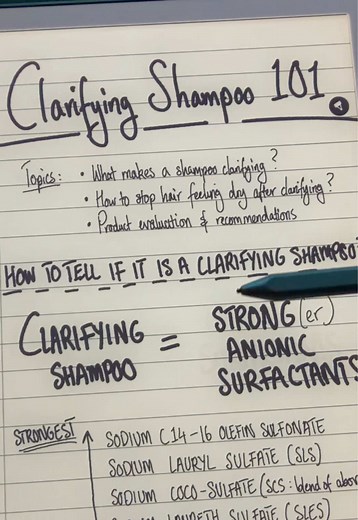 Clarifying Shampoo 101
Topics: • What makes a shampoo clarifying?
• How to stop hair feeling dry after clarifying?
• Product evaluation & recommendations
HOW TO TELL IF IT IS A CLARIFYING SHAMPOO?
CLARIFYING = STRONG(er)
SHAMPOO ANIONIC
SURFACTANTS
STRONGEST SODIUM C14-16 OLEFIN SULFONATE
SODIUM LAURYL SULFATE (SLS)
SODIUM COCO-SULFATE (SCS: blend of above
SODIUM LAURETH SULFATE (SLES)